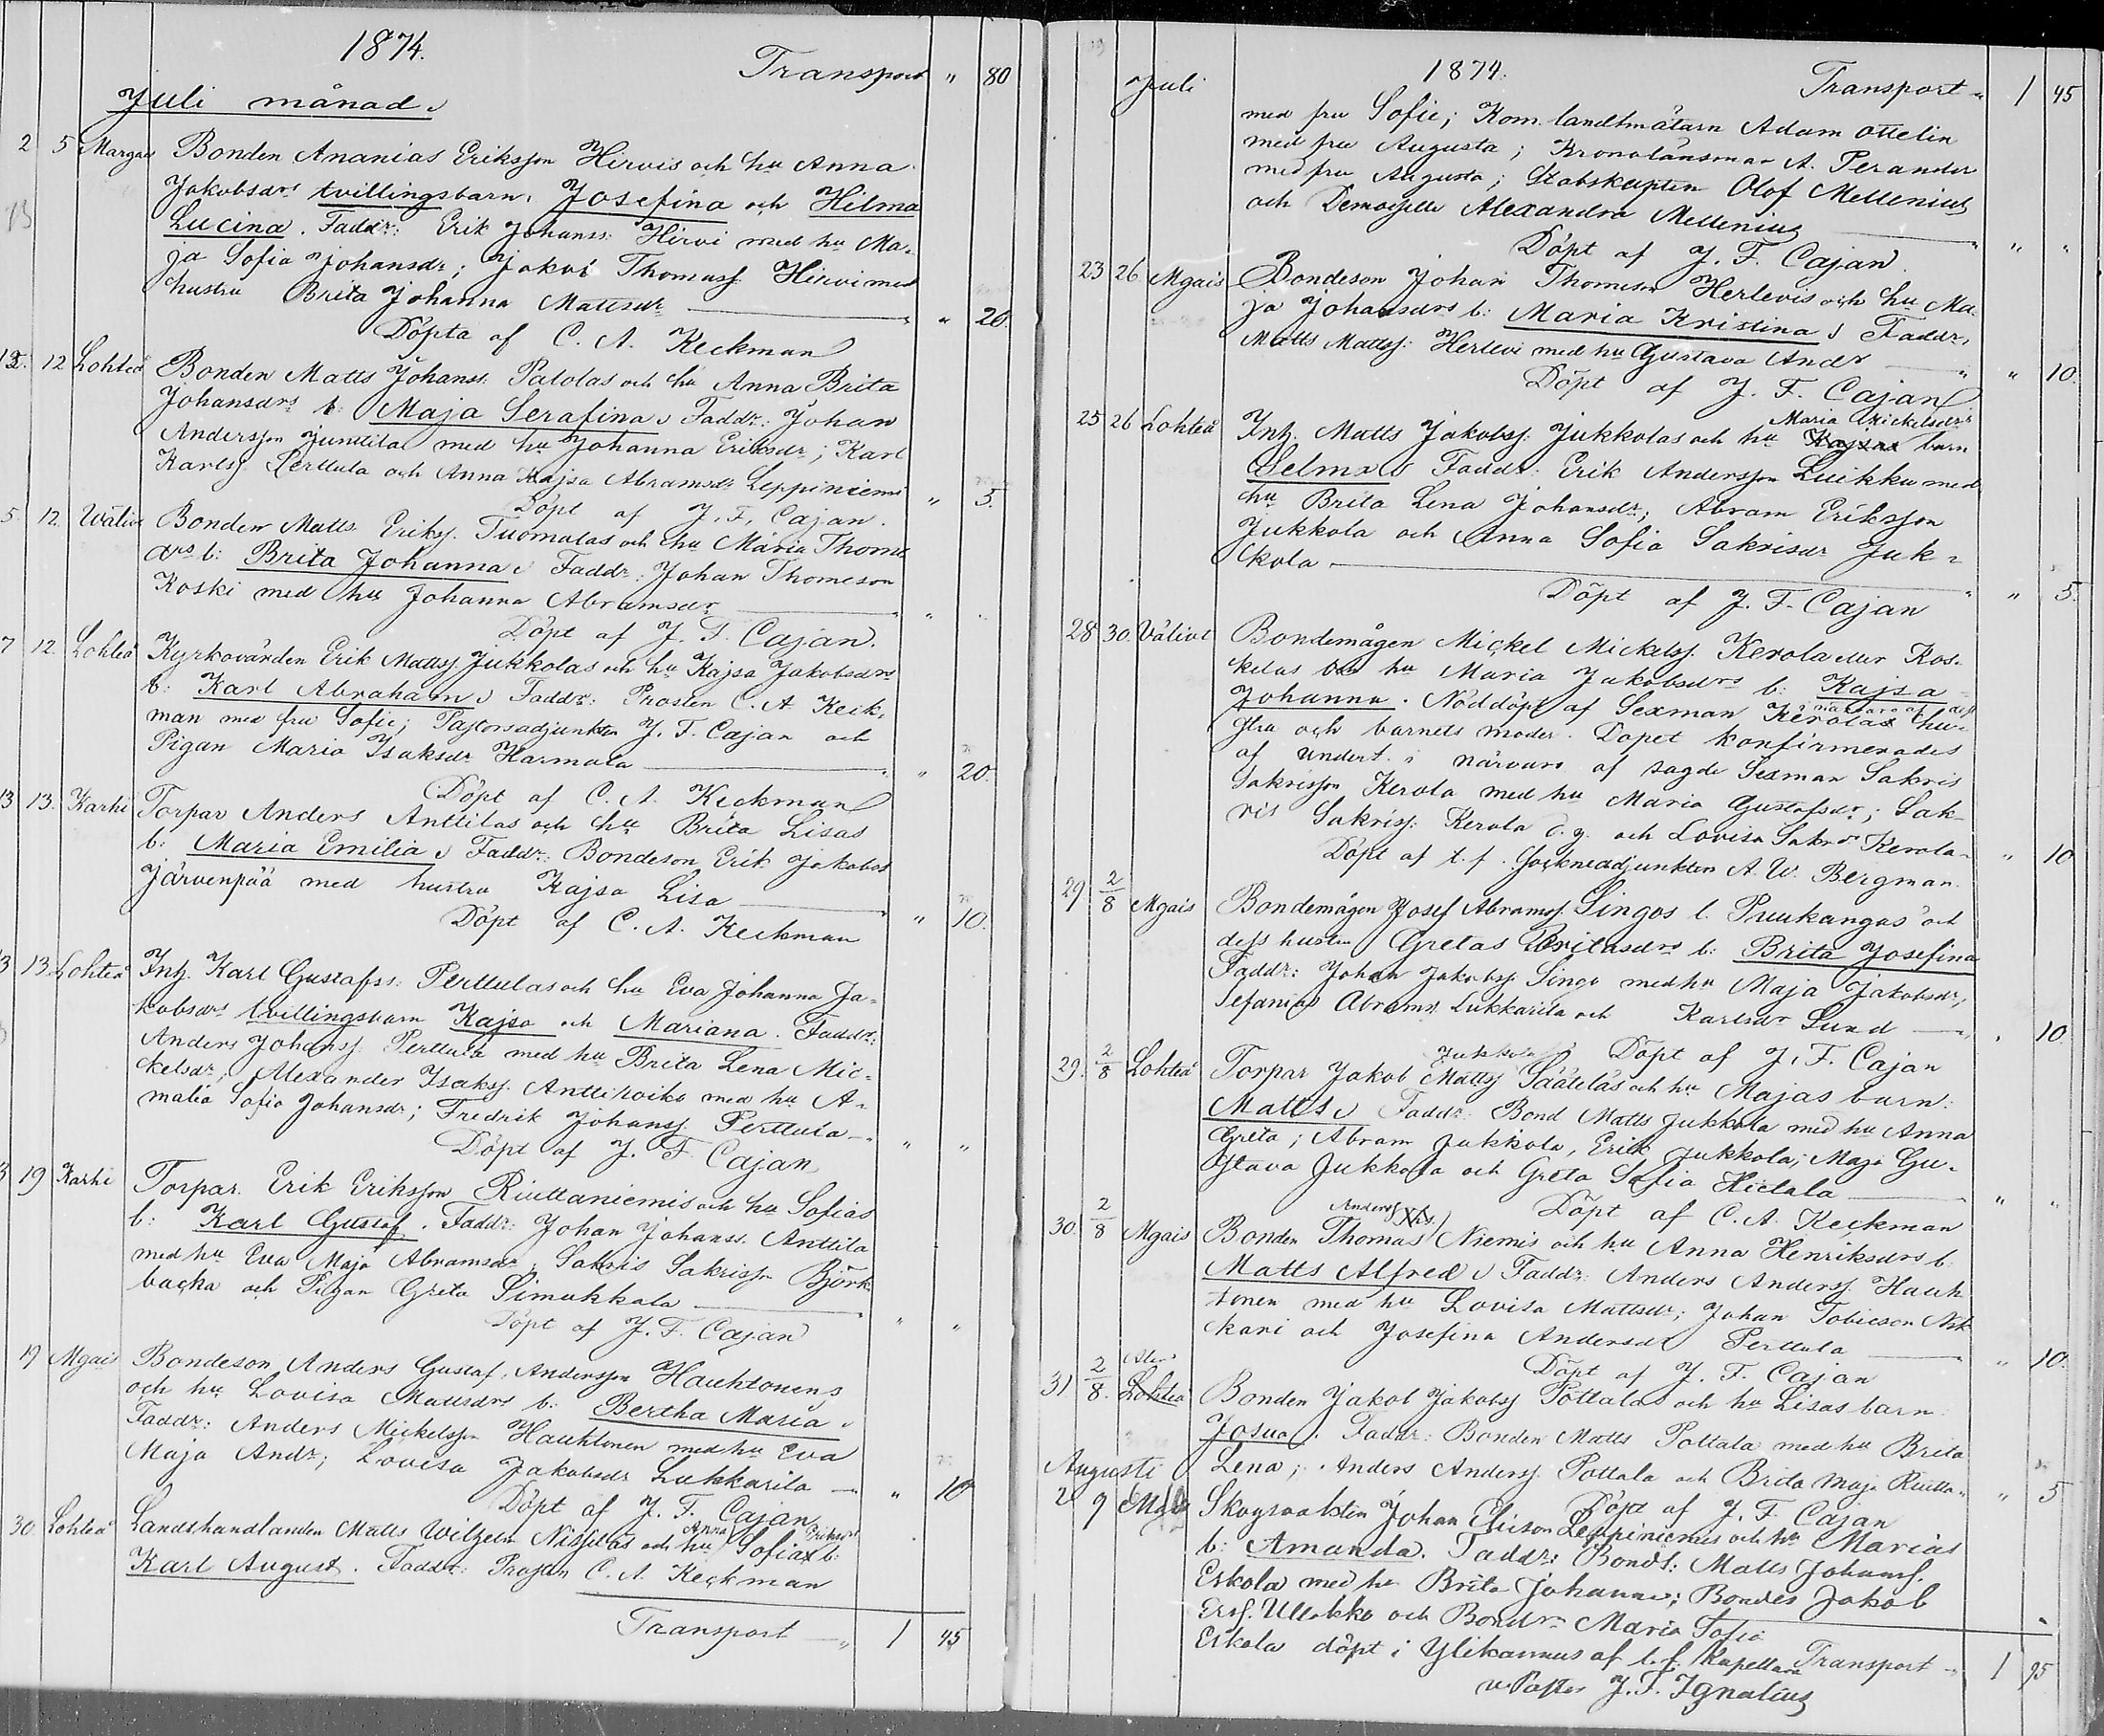 1874.
Transport " 80
Juli månad.
2 5 Margais Bonden Ananias Eriksson Hirvis och hu Anna
Jakobsdrs tvillingsbarn: Josefina och Hilma
Lucina. Faddr: Erik Johanss: Hirvi med hu Ma-
ja Sofia Johansdr; Jakob Thomass. Hirvi med
hustru Brita Johanna Mattsdr " 20.
Döpta af C. A. Keckman
12 Lohteå Bonden Matts Johanss. Palolas och hu Anna Brita
Johansdrs b: Maja Serafina. Faddr: Johan
Andersson Junttila med hu Johanna Eriksdr; Karl
Karlss. Perttula och Anna Kajsa Abramsdr Leppiniemi " 5.
Döpt af J. F. Cajan.
5. 12. Wälivi Bonden Matts Erikss. Tuomalas och hu Maria Thoms
drs b: Brita Johanna. Faddr: Johan Thomeson
Koski med hu Johanna Abramsdr " "
Döpt af J. F. Cajan.
7 12. Lohteå Kyrkovärden Erik Mattss. Jukkolas och hu Kajsa Jakobsdrs
b: Karl Abraham. Faddr: Prosten C. A. Keck-
man med fru Sofie; Pastorsadjunkten J. F. Cajan och
Pigan Maria Isaksdr Harmala " 20.
Döpt af C. A. Keckman
13 13. Karhi Torpar Anders Anttilas och hu Brita Lisas
b: Maria Emilia. Faddr: Bondeson Erik Jakobss
Järvenpää med hustru Kajsa Lisa " 10.
Döpt af C. A. Keckman
3 13 Lohteå Inh. Karl Gustafss: Perttulas och hu Eva Johanna Ja-
kobsdrs tvillingsbarn Kajsa och Mariana. Faddr:
Anders Johanss. Perttula med hu Brita Lena Mic-
kelsdr; Alexander Isakss. Anttiroiko med hu A-
malia Sofia Johansdr; Fredrik Johanss. Perttula " "
Döpt af J. F. Cajan
3 19 Karhi Torpar. Erik Eriksson Riuttaniemis och hu Sofias
b: Karl Gustaf. Faddr: Johan Johanss. Anttila
med hu Eva Maja Abramsdr; Sakris Sakrisson Björk-
backa och Pigan Greta Simukkala " "
Döpt af J. F. Cajan
19 Mgais Bondeson Anders Gustaf Andersson Hauhtonens
och hu Lovisa Mattsdrs b: Bertha Maria.
Faddr: Anders Mickelsson Hauhtonen med hu Eva
Maja Andr; Lovisa Jakobsdr Lukkarila " 10
Döpt af J. F. Cajan
30. Lohteå Landthandlanden Matts Wilhelm Nissilas och hu Anna Sofias Eriksdrs b:
Karl August. Faddr: Prosten C. A. Keckman
Transport " 1 45
1874.
Juli Transport " 1 45
med fru Sofie; Kom. landtmätarn Adam Ottelin
med fru Augusta; Kronolänsman A. Perander
med fru Augusta; Stabskapten Olof Mellenius
och Demoiselle Alexandra Mellenius " "
Döpt af J. F. Cajan.
23 26 Mgais Bondeson Johan Thomeson Herlevis och hu Ma-
ja Johansdrs b: Maria Kristina. Faddr,
Matts Mattss: Herlevi med hu Gustava Andr " 10.
Döpt af J. F. Cajan
25 26 Lohteå Inh. Matts Jakobss. Jukkolas och hu Maria Mickelsdrs Kajsas barn
Selma. Faddr: Erik Andersson Luikku med
hu Brita Lena Johansdr; Abram Eriksson
Jukkola och Anna Sofia Sakrisdr Juk-
kola " 5.
Döpt af J. F. Cajan
28 30. Välivi Bondemågen Mickel Mickelss. Kerola eller Kos-
kelas och hu Maria Jakobsdrs b: Kajsa
Johanna. Nöddöpt af Sexman Kerolas i närvaro af dess hu-
stru och barnets moder. Dopet konfirmerades
af undert. i närvaro af sagde Sexman Sakris
Sakrisson Kerola med hu Maria Gustafsdr; Sak-
ris Sakriss: Kerola d.y. och Lovisa Sakrdr Kerola " 10
Döpt af t.f. sockneadjunkten A. W. Bergman
29 2/8 Mgais Bondemågen Josef Abramss. Singos l. Puukangas och
dess hustru Gretas Eriksdrs b: Brita Josefina
Faddr: Johan Jakobss. Singo med hu Maja Jakobsdr;
Sefanias Abrams. Lukkarila och Karlsdr Lund " 10.
Döpt af J. F. Cajan
29. 2/8 Lohteå Torpar Jakob Mattss Jukkola Säätelas och hu Majas barn:
Matts. Faddr: Bond Matts Jukkola med hu Anna
Greta; Abram Jukkola, Erik Jukkola; Maja Gu-
stava Jukkola och Greta Sofia Hietala " "
Döpt af C. A. Keckman
30. 2/8 Mgais Bonden Thomas Anderss. Niemis och hu Anna Henriksdrs b.
Matts Alfred. Faddr: Anders Anderss. Hauh
tonen med hu Lovisa Mattsdr; Johan Tobieson Nik
kari och Josefina Andersdr Perttula " 10.
Döpt af J. F. Cajan
31 2/8. Lohteå Bonden Jakob Jakobss Pottalas och hu Lisas barn
Josua. Faddr: Bonden Matts Pottala med hu Brita
Lena; Anders Anderss. Pottala och Brita Maja Riutta " 5
Döpt af J. F. Cajan
Augusti
2 9 Skogvaktrn Johan Elison Leppiniemis och hu Marias
b: Amanda. Faddr: Bonds: Matts Johanss.
Eskola med hu Brita Johanna; Bondes Jakob
Erss. Ullakko och Bondr Maria Sofia
Eskola döpt i Ylikannus af t.f. Kapellan
v. Pastor J. F. Ignatius
Transport " 1 95